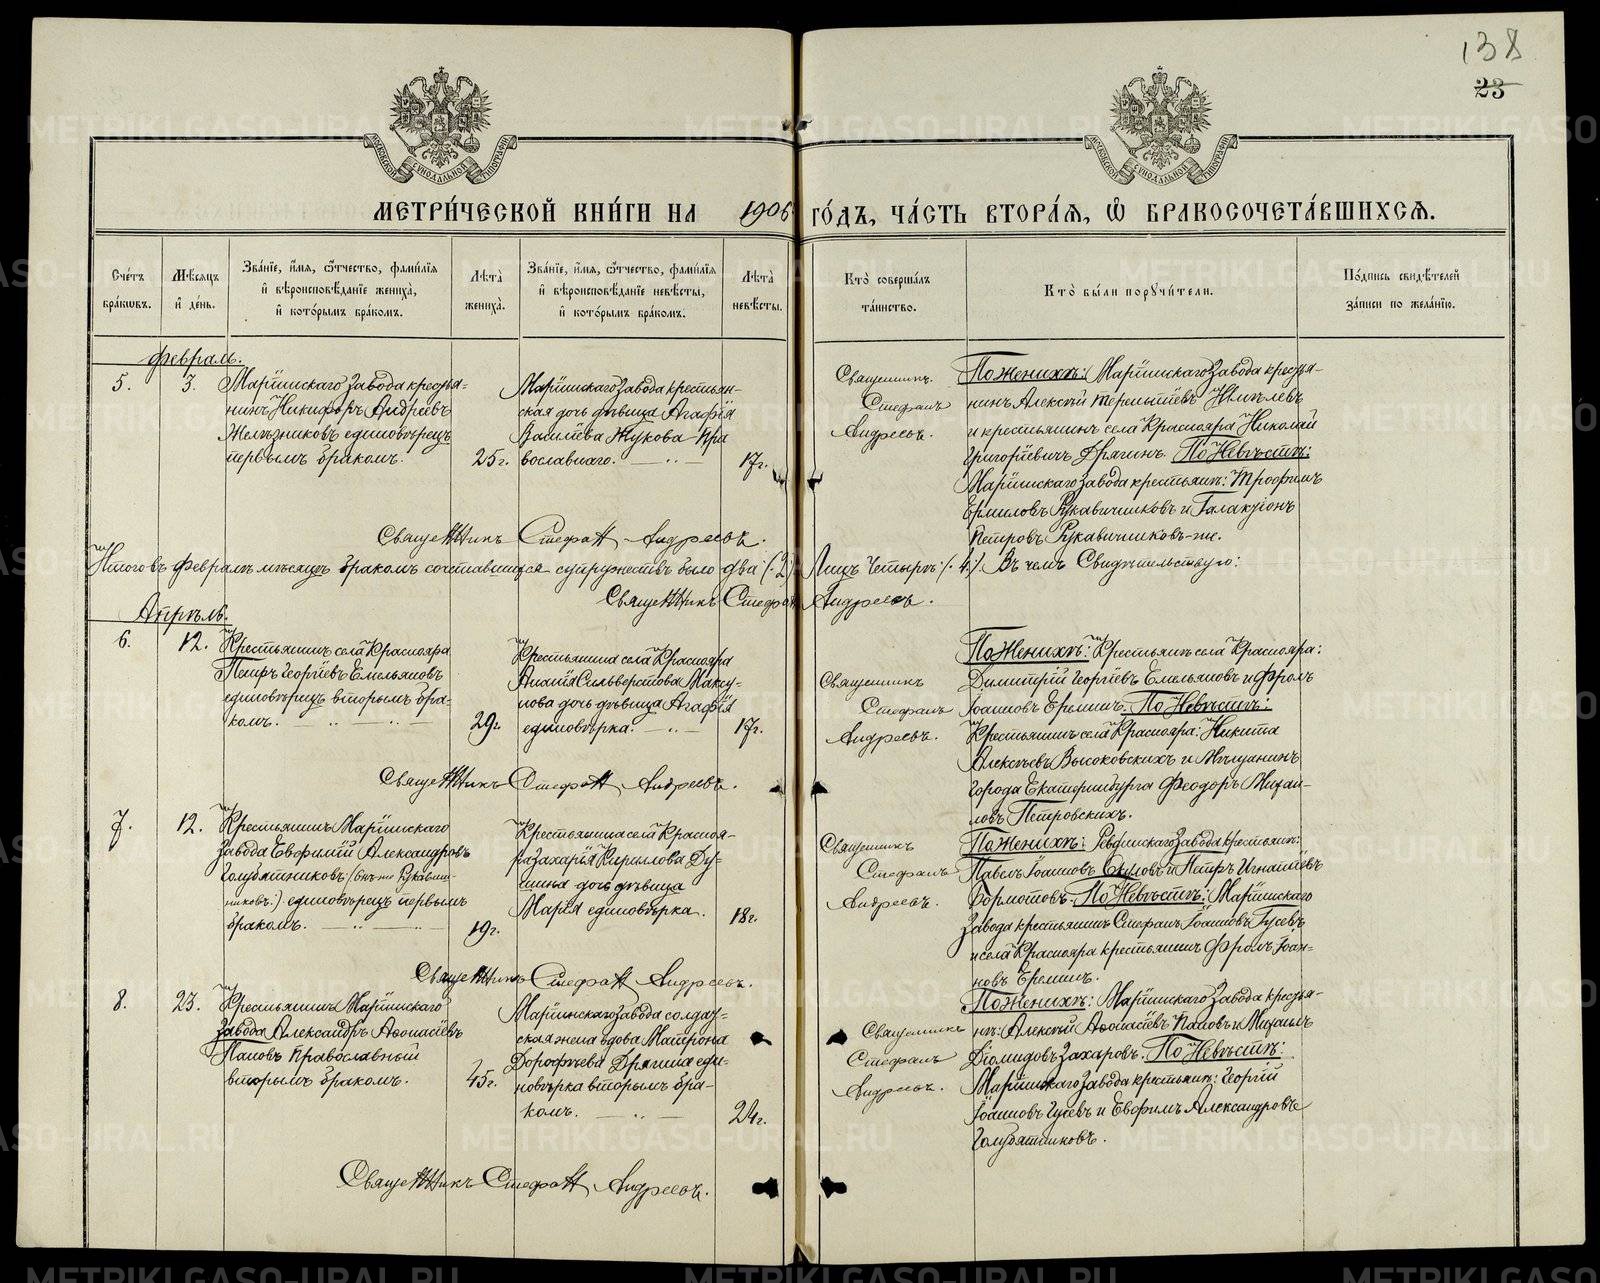 138
23
МЕТРИ́ЧЕСКОЙ КНИ́ГИ НА 1906 ГО́ДЪ, ЧА́СТЬ ВТОРА́Я, Ѡ БРАКОСОЧЕТА́ВШИХСЯ.
Сче́тъ бра́кωвъ.
Мѣ́сяцъ и҆ де́нь.
Зва́нїе, и҆́мя, ѻ҆́тчество, фами́лїя
и҆ вѣроисповѣ́данїе жениха̀,
и҆ кото́рымъ бра́комъ.
Лѣ́та жениха̀.
Зва́нїе, и҆́мя, ѻ҆́тчество, фами́лїя
и҆ вѣроисповѣ́данїе невѣ́сты,
и҆ кото́рымъ бра́комъ.
Лѣ́та невѣ́сты.
Кто̀ соверша́лъ
та́инство.
Кто̀ бы́ли порꙋчи́тели.
По́дпись свидѣ́телей
за́писи по жела́нїю.
Февраль.
5.
3.
Марїинскаго Завода крестья-
нинъ Никифоръ Андреевъ
Желѣзниковъ единовѣрецъ
первымъ бракомъ.
25г.
Марїинскаго Завода крестьян-
ская дочь дѣвица Агафїя
Василїева Жукова Пра
вославнаго.
17г.
Священник.
Стефанъ
Андреевъ.
По Женихѣ: Марїинскаго Завода крестья-
нинъ Алексѣй Терентїевъ
и крестьянинъ села Краснояра Николай
Григорїевичъ Дрягинъ. По Невѣстѣ:
Марїинскаго Завода крестьян: Трофимъ
Ермиловъ Рукавичниковъ и Галактїонъ
Петровъ Рукавичниковъ-же.
Священникъ Стефан Андреевъ.
Итого въ Февралѣ мѣсяцѣ бракомъ сочетавшихся супружествъ было два (:2) Лицъ Четыре: (:4:). Въ чемъ Свидѣтельствую:
Священникъ Стефан Андреевъ.
Апрѣль.
6.
12.
Крестьянинъ села Краснояра
Петръ Георгїевъ Емельяновъ
единовѣрецъ вторымъ бра-
комъ.
29г.
Крестьянина села Краснояра
Ананїя Сильверстова Маку-
нова дочь дѣвица Агафїя
единовѣрка.
17г.
Священникъ
Стефанъ
Андреевъ.
По Женихѣ: Крестьян: села Краснояра:
Димитрїй Георгїевъ Емельяновъ и Фролъ
Іоанновъ Ереминъ. По Невѣстѣ:
Крестьянинъ села Краснояра: Никита
Алексѣевъ Высоковскихъ и Мѣщанинъ
города Екатеринбурга Феодоръ Михаи-
ловъ Петровскихъ.
Священникъ Стефан Андреевъ.
7.
12.
Крестьянинъ Марїинскаго
Завода Евфимїй Александровъ
Голубятниковъ (: онъ-же Рукавиш-
никовъ:) единовѣрецъ первымъ
бракомъ.
19г.
Крестьянина села Краснoя-
ра Захарїя Кириллова Ду-
шина дочь дѣвица
Марїя единовѣрка.
18г.
Священникъ
Стефанъ
Андреевъ.
По Женихѣ: Ревдинскаго Завода крестьян:
Павелъ Іоанновъ и Петръ Игнатїевъ
Бормотовъ. По Невѣстѣ: Марїинскаго
Завода крестьянинъ Стефанъ Іоанновъ Гусевъ
и села Краснояра крестьянинъ Фролъ Іоан-
новъ Ереминъ.
Священникъ Стефан Андреевъ.
8.
23.
Крестьянинъ Марїинскаго
Завода Александръ Аѳонасїевъ
Пановъ Православный
вторымъ бракомъ.
45г.
Марїинскаго Завода солдат-
ская жена вдова Матрона
Дорофѣева Дрягина еди-
новѣрка вторымъ бра-
комъ.
24г.
Священникъ
Стефанъ
Андреевъ.
По Женихѣ: Марїинскаго Завода крестья-
нъ: Алексѣй Аѳонасїевъ Пановъ и Михаилъ
Дїомидовъ Захаровъ. По Невѣстѣ:
Марїинскаго Завода крестьян: Георгїй
Іоанновъ Гусевъ и Евфимъ Александровъ
Голубятниковъ.
Священникъ Стефан Андреевъ.